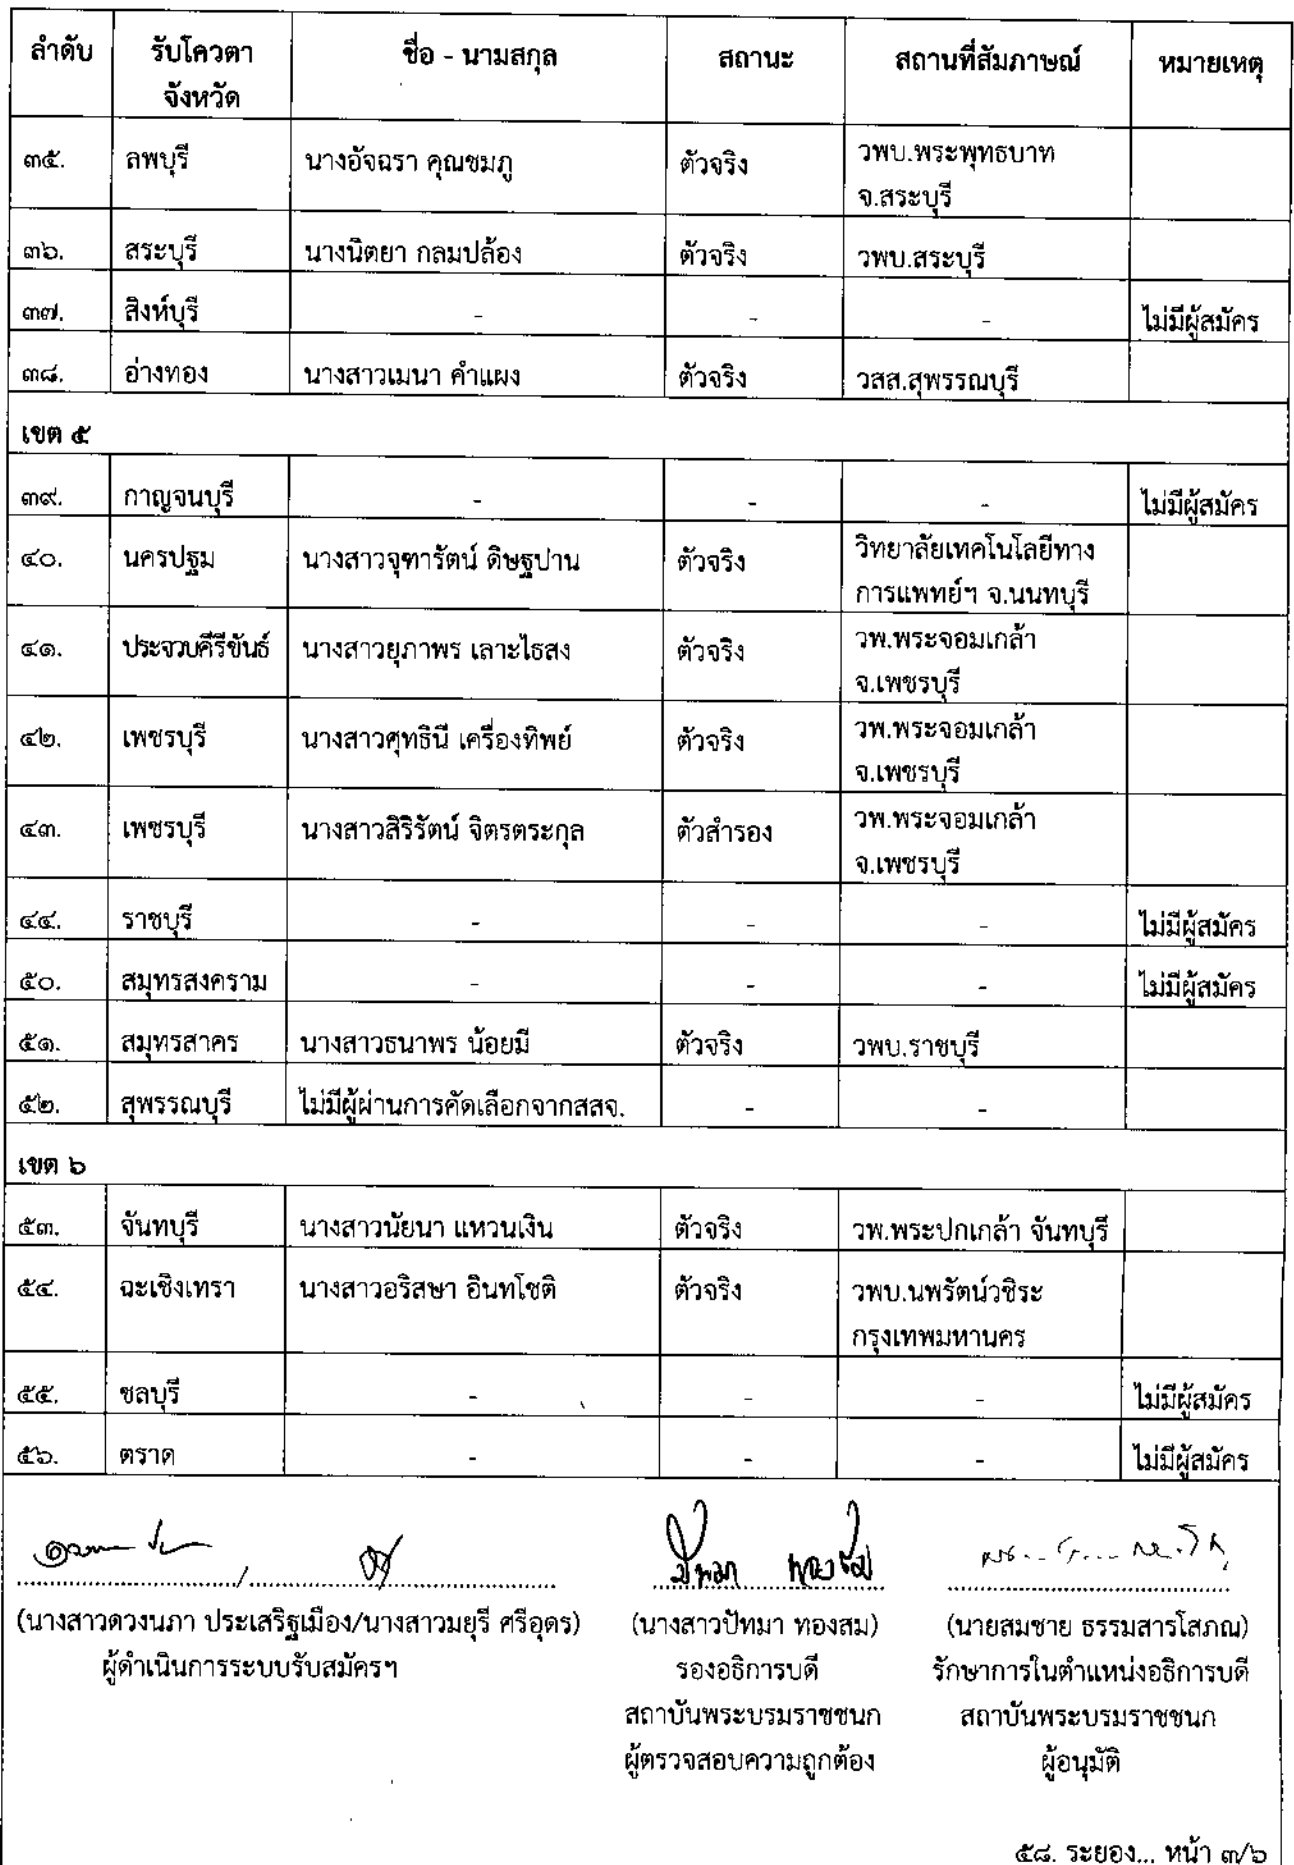 ลำดับ รับโควตา ชื่อ - นามสกุล สถานะ สถานที่สัมภาษณ์ หมายเหตุ
จังหวัด
๓๕. ลพบุรี นางอัจฉรา คุณชมภู ตัวจริง วพบ.พระพุทธบาท
จ.สระบุรี
๓๖. สระบุรี นางนิตยา กลมปล้อง ตัวจริง วพบ.สระบุรี
๓๗. สิงห์บุรี - - - ไม่มีผู้สมัคร
๓๘. อ่างทอง นางสาวเมนา คำแผง ตัวจริง วสส.สุพรรณบุรี
เขต ๕
๓๙. กาญจนบุรี - - - ไม่มีผู้สมัคร
๔๐. นครปฐม นางสาวจุฑารัตน์ ดิษฐปาน ตัวจริง วิทยาลัยเทคโนโลยีทาง
การแพทย์ฯ จ.นนทบุรี
๔๑. ประจวบคีรีขันธ์ นางสาวยุภาพร เลาะไธสง ตัวจริง วพ.พระจอมเกล้า
จ.เพชรบุรี
๔๒. เพชรบุรี นางสาวศุทธินี เครื่องทิพย์ ตัวจริง วพ.พระจอมเกล้า
จ.เพชรบุรี
๔๓. เพชรบุรี นางสาวสิริรัตน์ จิตรตระกุล ตัวสำรอง วพ.พระจอมเกล้า
จ.เพชรบุรี
๔๔. ราชบุรี - - - ไม่มีผู้สมัคร
๕๐. สมุทรสงคราม - - - ไม่มีผู้สมัคร
๕๑. สมุทรสาคร นางสาวธนาพร น้อยมี ตัวจริง วพบ.ราชบุรี
๕๒. สุพรรณบุรี ไม่มีผู้ผ่านการคัดเลือกจากสสจ. - -
เขต ๖
๕๓. จันทบุรี นางสาวนัยนา แหวนเงิน ตัวจริง วพ.พระปกเกล้า จันทบุรี
๕๔. ฉะเชิงเทรา นางสาวอริสษา อินทโชติ ตัวจริง วพบ.นพรัตน์วชิระ
กรุงเทพมหานคร
๕๕. ชลบุรี - - - ไม่มีผู้สมัคร
๕๖. ตราด - - - ไม่มีผู้สมัคร
ปัทมา ทองสม
(นางสาวดวงนภา ประเสริฐเมือง/นางสาวมยุรี ศรีอุดร) (นางสาวปัทมา ทองสม) (นายสมชาย ธรรมสารโสภณ)
ผู้ดำเนินการระบบรับสมัครฯ รองอธิการบดี รักษาการในตำแหน่งอธิการบดี
สถาบันพระบรมราชชนก สถาบันพระบรมราชชนก
ผู้ตรวจสอบความถูกต้อง ผู้อนุมัติ
๕๘. ระยอง... หน้า ๓/๖